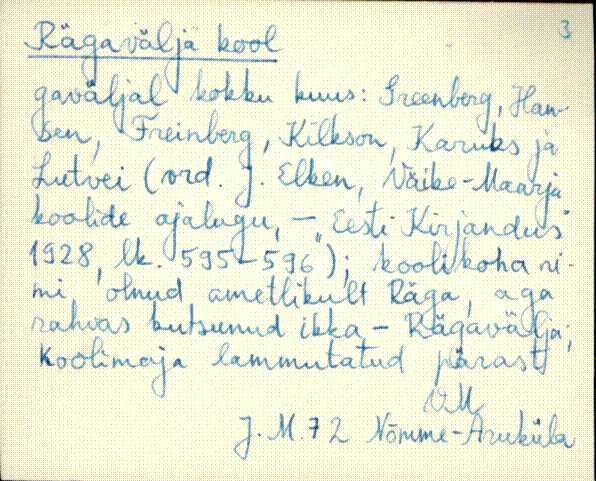 3
Rägavälja kool
gaväljal kokku kuus: Greenberg, Han-
sen, Freinberg, Kilkson, Karuks ja
Lutvei (vrd. J. Elken, Väike-Maarja
koolide ajalugu, – „Eesti Kirjandus"
1928, lk. 595-596); koolikoha ni-
mi olnud ametlikult Räga, aga
rahvas kutsunud ikka – Rägavälja;
Koolimaja lammutatud pärast
VM
J. M. 72 Nõmme-Aruküla